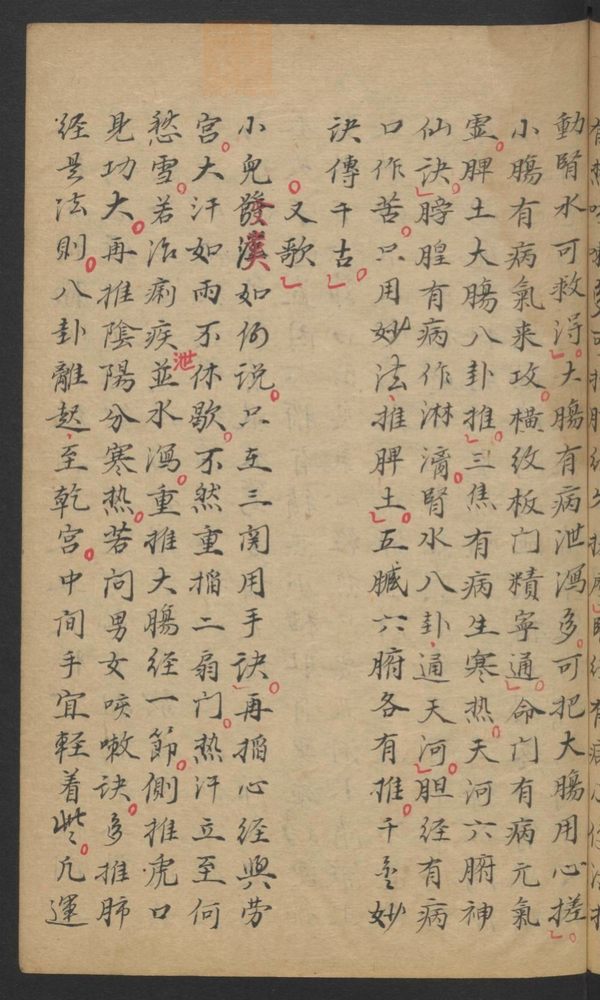 動腎水可救得大腸有病泄瀉多可把大腸用心搓
小腸有病氣来攻横纹板门精寧通命门有病元氣
霊脾土大腸八卦推三焦有病生寒热天河六腑神
仙訣膀胱有病作淋瀝腎水八卦通天河胆经有病
口作苦只用妙法推脾土五臟六腑各有推千金妙
訣傳千古
又歌
小兒發漢如何说只在三関用手訣再搯心经與劳
宫大汗如雨不休歇不然重搯二扇门热汗立至何
愁雪若治痢疾並水瀉泄重推大腸经一節側推虎口
見功大再推陰陽分寒热若问男女咳嗽诀多推肺
经是法則八卦離起至乾宫中间手宜軽着些凡運